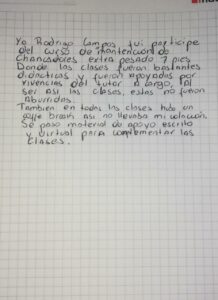 Yo Rodrigo Campos fui participe
del curso de mantención de
Chancadores extra pesado 7 pies
Donde las clases fueron bastantes
didacticas y fueron apoyadas por
vivencias del tutor a cargo, al
ser asi las clases, estas no fueron
aburridas.
Tambien en todas las clases hubo un
coffe break asi no llevaba mi colacion.
Se paso material de apoyo escrito
y virtual para complementar las
clases.